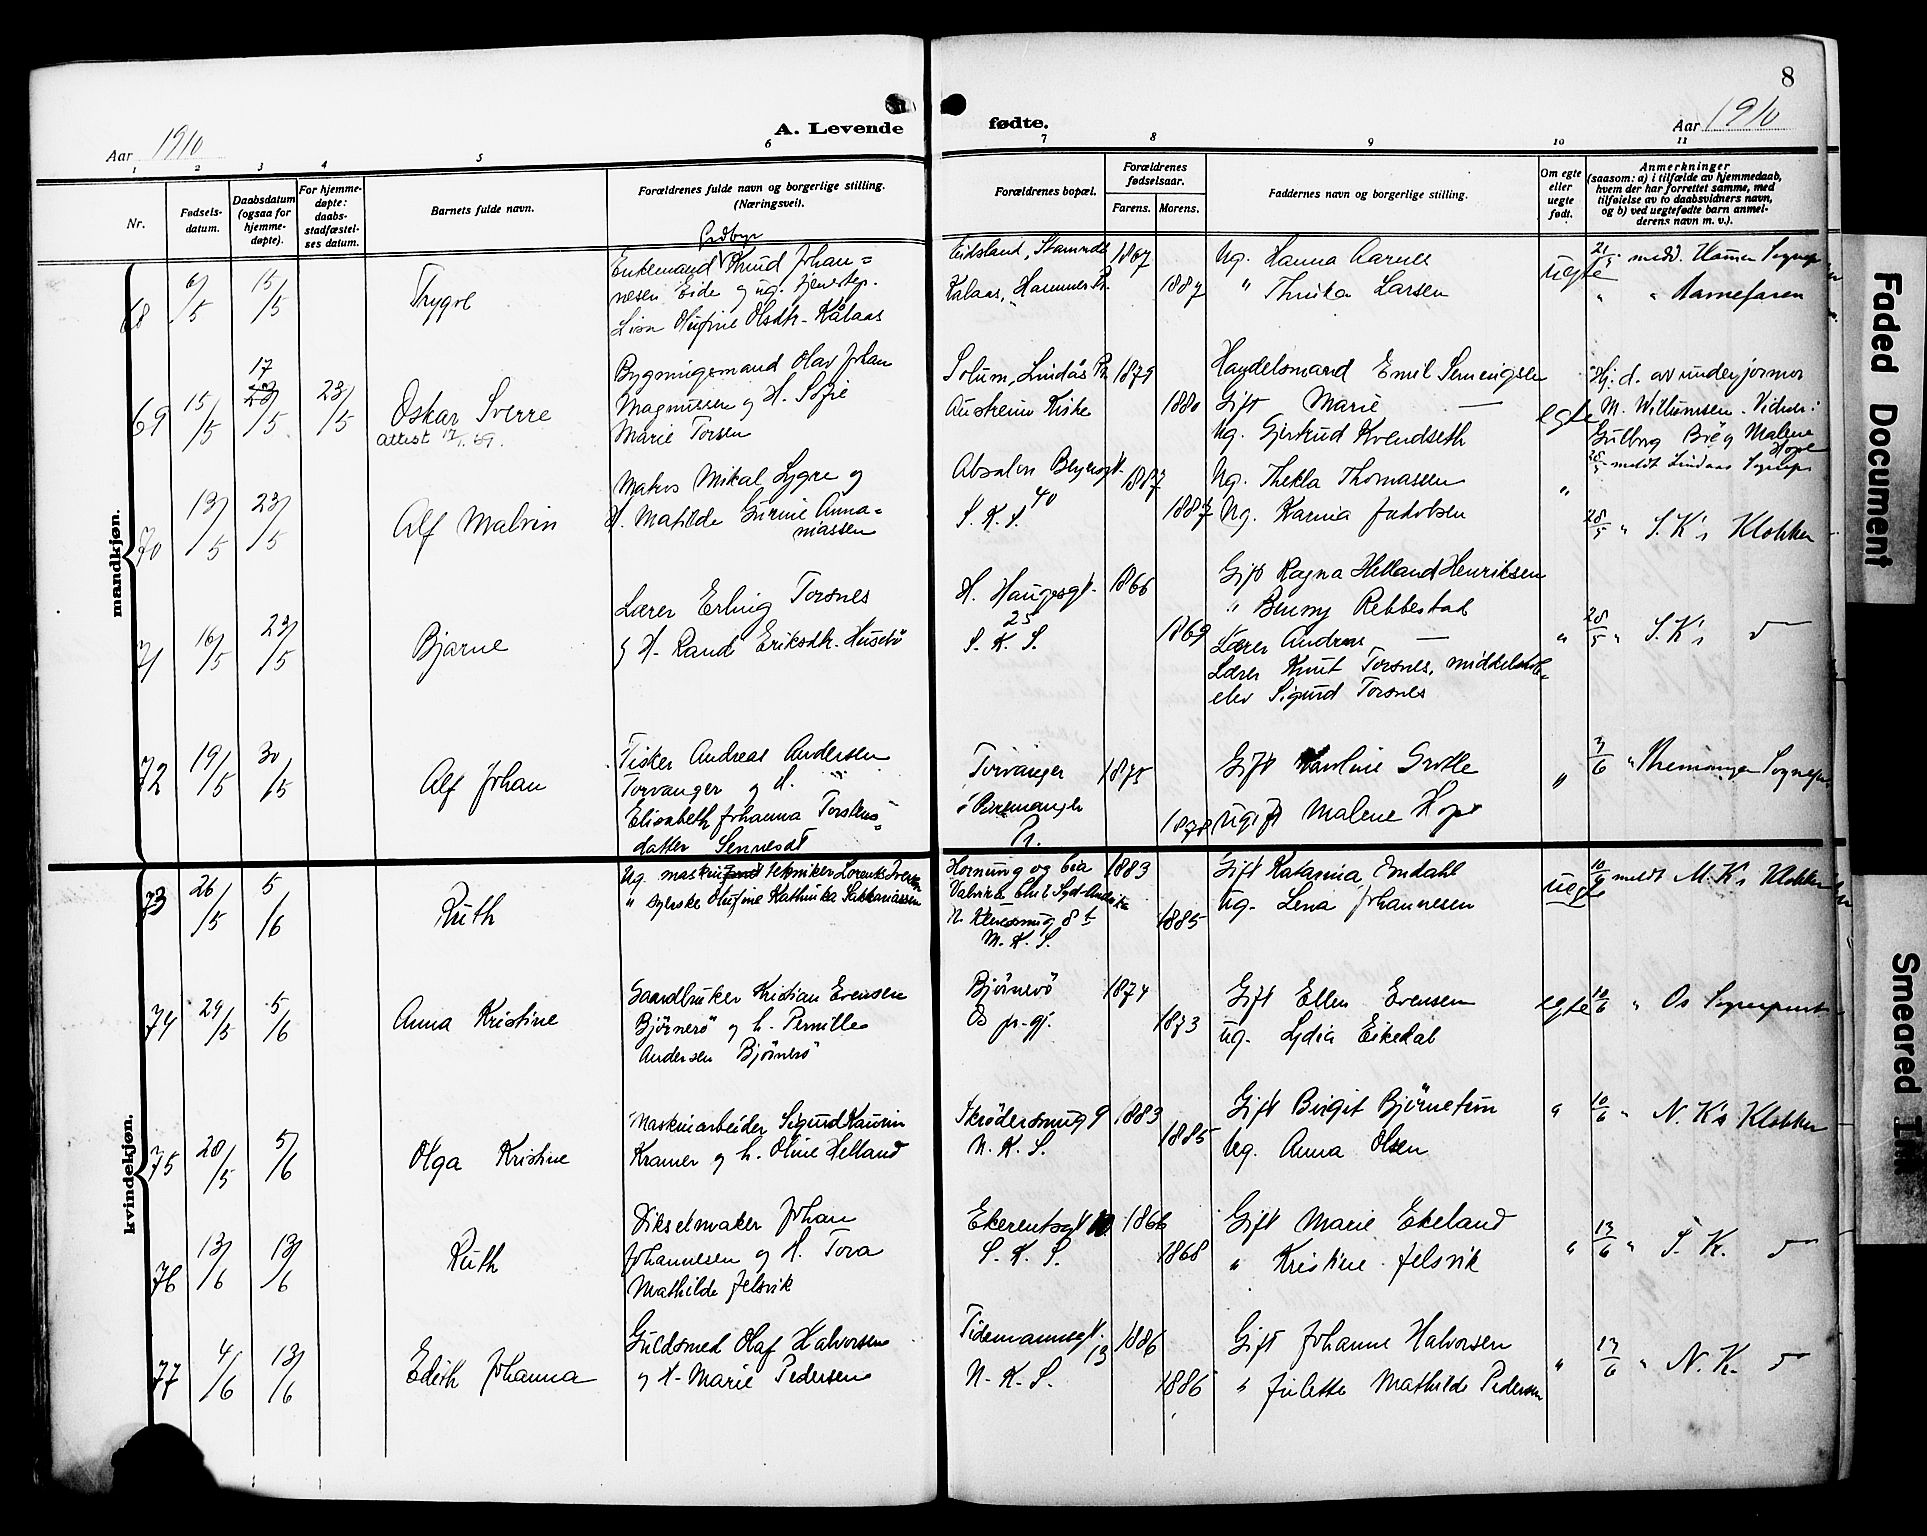 8
Aar 1910
A. Levende
fødte.
Aar 1910
1 2 3 4 5 6 7 8 9 10 11
Nr.
Fødsels-
datum.
Daabsdatum
(ogsaa for
hjemme-
døpte).
For hjemme-
døpte:
daabs-
stadfæstel-
ses datum.
Barnets fulde navn.
Forældrenes fulde navn og borgerlige stilling.
(Næringsvei).
Forældrenes bopæl.
Forældrenes
fødselsaar.
Farens. Morens.
Faddernes navn og borgerlige stilling.
Om egte
eller
uegte
født.
Anmerkninger
(saasom: a) i tilfælde av hjemmedaab,
hvem der har forrettet samme, med
tilføielse av to daabsvidners navn,
og b) ved uegtefødte barn anmel-
derens navn m. v.).
mandkjøn.
68 6/5 15/5
Trygve
Enkemand Knud Johan=
nesen Eide og ug. tjenestep.
Olufine Olsdtr. Kålaas
Eidsland,
Kalaas, Hammer Pr.
1867
1887
Ug. Hanna Aarnes
" Larsen
uegte
21/5 meld. Hammer Sognepr
" "
69 15/5 17/5 23/5
Oskar Sverre
Attest
Bygningsmand Olav Johan
Magnussen og H. Sofie
Marie Torsen
Solum, Lindås Pr
Austreim Kirke
1879
1880
Handelsmand Emil
Gift Marie —
Ug. Gjertrud Kvendseth
egte
Hj. d. av underjormor
M. Willumsen. Vidner:
Gulborg og Malene
Hope
meldt Lindaas Sognepr
70 13/5 23/5
Alf Malvin
Matros Mikal Lygre og
H. Matilde Gurine Anna=
niassen
Absalon Beyersgt.
40
S. K. S.
1887
1887
Ug. Thekla Thomassen
Ug. Karina Jakobsen
"
28/5 " S. K's Klokker
71 16/5 23/5
Bjarne
Lærer Erling Torsnes
og H. Rand Eriksdtr. Husebö
H. Haugesgt.
25
S. K. S.
1866
1869
Gift Ragna Helland Henriksen
" Benny Rebbestad
Lærer Andreas —
Lærer Knut Torsnes, middelskole-
elev Sigurd Torsnes
"
28/5 " S. K's
72 19/5 30/5
Alf Johan
Fisker Andreas Andersen
Torvanger og H.
Elisabeth Johanna Torstens=
datter Sennesdt
Torvanger
i Bremanger
Pr.
1875
1878
Gift Karoline Grotle
Ugift Malene Hope
"
3/6 " Bremanger Sognepr.
kvindekjøn.
73 26/5 5/6
Ruth
Ug. maskintekniker Lorents Iversen
" syerske Olufine Kathinka Sakkariassen
Hornung og Cia
Syd-Amerika
8 b
N. K. S.
1883
1885
Gift Katarina Emdahl
Ug. Lena Johannesen
uegte
10/6 meldt N. K's Klokker
74 24/5 5/6
Anna Kristine
Gaardbruker Kristian Evensen
Björnerö og h. Pernille
Andersen Björnerö
Björnerö
Os pr.gj.
1874
1873
Gift Ellen Evensen
Ug. Lydia Eikedal
egte
10/6 " Os Sogneprest
75 28/5 5/6
Olga Kristine
Maskinarbeider Sigurd Laurin
Kramer og h. Oline Helland
Skrödersmug 9
N. K. S.
1883
1885
Gift Birgit Björnetun
Ug. Anna Olsen
"
10/6 " N. K's Klokker
76 13/6 13/6
Ruth
Dikselmaker Johan
Johannesen og H. Tora
Mathilde Jelsvik
S. K. S.
1866
1868
Gift Marie Ekeland
" Kristine Jelsvik
"
13/6 " S. K.
77 4/6 13/6
Edith Johanna
Guldsmed Olaf Halvorsen
og H. Marie Pedersen
Tidemannsgt.
13
N. K. S.
1886
1886
Gift Johanne Halvorsen
" Julette Mathilde Pedersen
"
13/6 " N. K.
Faded Document
Smeared Ink